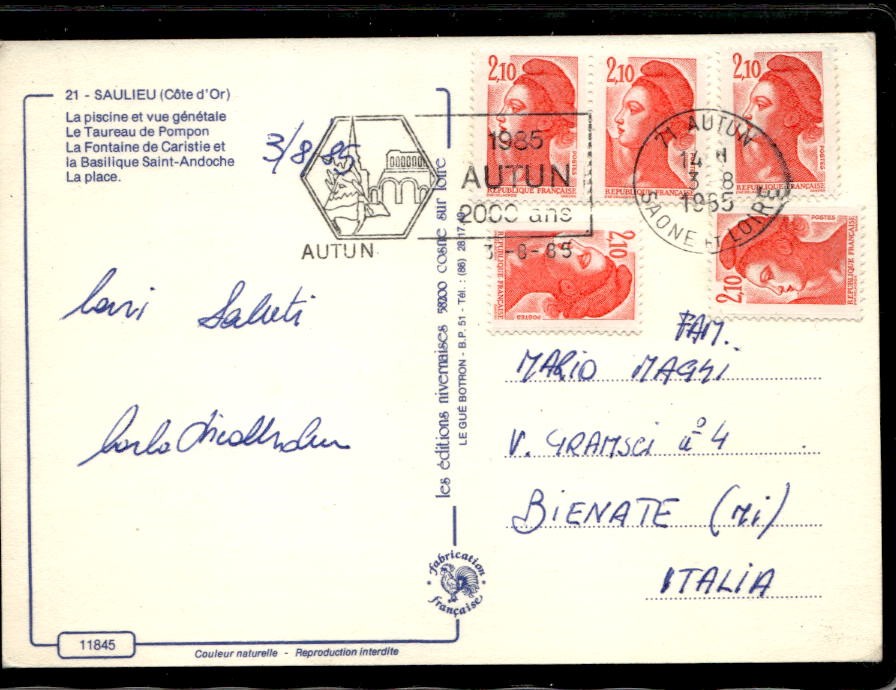 21 - SAULIEU (Côte d'Or)
La piscine et vue génétale
Le Taureau de Pompon
La Fontaine de Caristie et
la Basilique Saint-Andoche
La place.
3/8/85
AUTUN
1985
AUTUN
2000 ans
3-8-85
71 AUTUN
14 H
3 8
1985
SAONE ET LOIRE
2,10
POSTES
REPUBLIQUE FRANÇAISE
2,10
POSTES
REPUBLIQUE FRANÇAISE
2,10
POSTES
REPUBLIQUE FRANÇAISE
2,10
POSTES
REPUBLIQUE FRANÇAISE
2,10
POSTES
REPUBLIQUE FRANÇAISE
Cari Saluti
Carlo
FAM.
MARIO MAGNI
V. GRAMSCI n° 4
BIENATE (Mi)
ITALIA
les éditions nivernaises 58200 cosne sur loire
LE GUÉ BOTRON - B.P. 51 - Tél. : (86) 28.17.
fabrication
française
11845
Couleur naturelle - Reproduction interdite